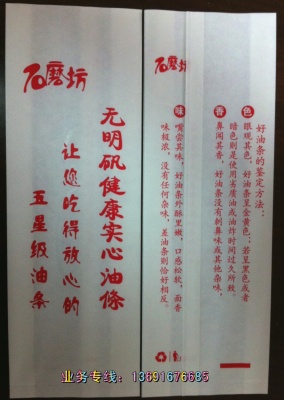 石磨坊
无明矾健康实心油條
让您吃得放心的
五星级油条
石磨坊
好油条的鉴定方法：
色
眼观其色，好油条呈金黄色；若呈黑色或者
暗色则是使用劣质油或油炸时间过久所致。
香
鼻闻其香，好油条没有刺鼻味或其他杂味，
味
嘴尝其味，好油条外酥里嫩，口感松软，面香
味极浓，没有任何杂味，差油条则恰好相反。
业务专线：13691676685